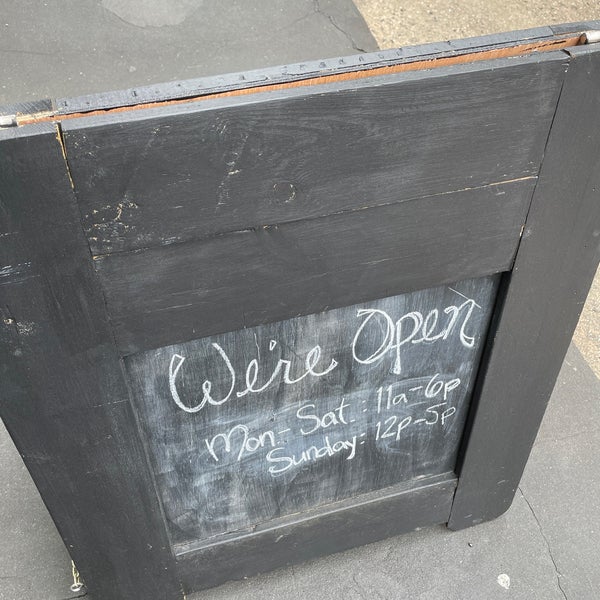 We're Open
Mon-Sat.: 11a-6p
Sunday: 12p-5p